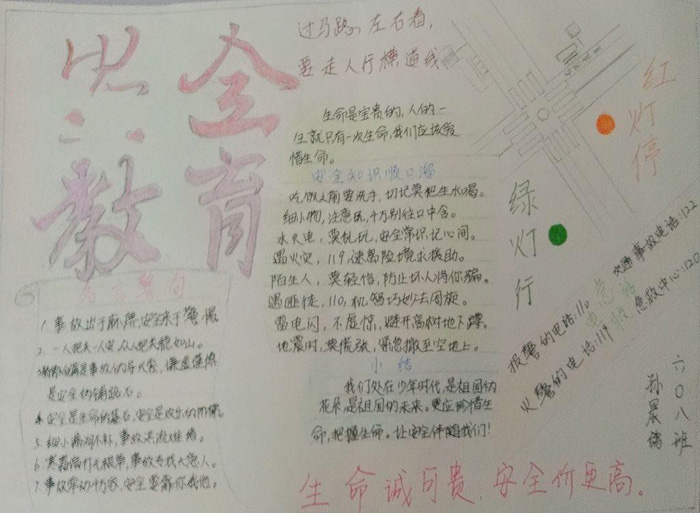 安全
教育
过马路，左右看，
要走人行横道线
红灯停
绿灯行
生命是宝贵的，人的一
生就只有一次生命，我们应该爱
惜生命。
安全知识顺口溜
吃饭之前要洗手，切记莫把生水喝。
细小物，注意玩，千万别往口中含。
水火电，莫乱玩，安全常识记心间。
遇火灾，119，速离险境求援助。
陌生人，莫轻信，防止坏人将你骗。
遇匪徒，110，机智巧妙去周旋。
雷电闪，不慌惊，避开高树地下蹲。
地震时，莫慌张，紧急撤至空地上。
小结
我们处在少年时代，是祖国的
花朵，是祖国的未来。更应珍惜生
命，把握生命。让安全伴随我们！
名言警句
1、事故出于麻痹，安全来于警惕
2、一人把关一人安，众人把关稳如山。
是安全的铺路石。
4、安全是生命的基石，安全是欢乐的阶梯
5、细小漏洞不补，事故洪流难堵。
7、事故牵动千万家，安全要靠你我他。
交通事故电话：122
急救中心：120
报警的电话：110
火警的电话：119
六〇八班
生命诚可贵，安全价更高。